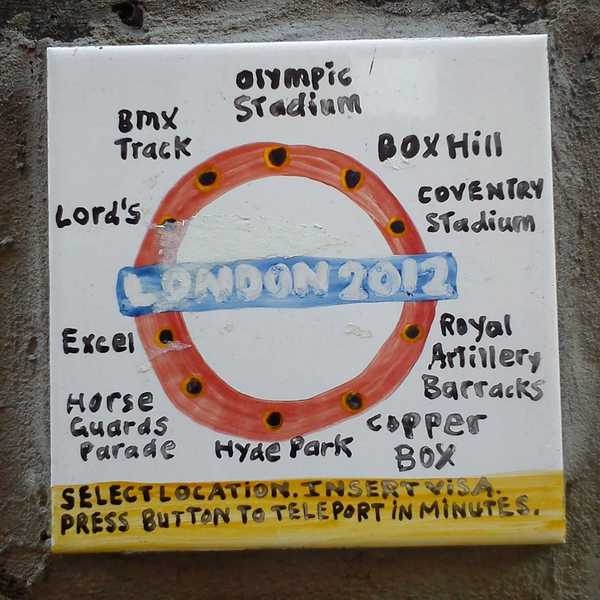 Olympic
Stadium
BMX
Track
BOX Hill
Lord's
COVENTRY
Stadium
LONDON 2012
Excel
Royal
Artillery
Barracks
Horse
Guards
Parade
Hyde Park
COPPER
BOX
SELECT LOCATION. INSERT VISA.
PRESS BUTTON TO TELEPORT IN MINUTES.